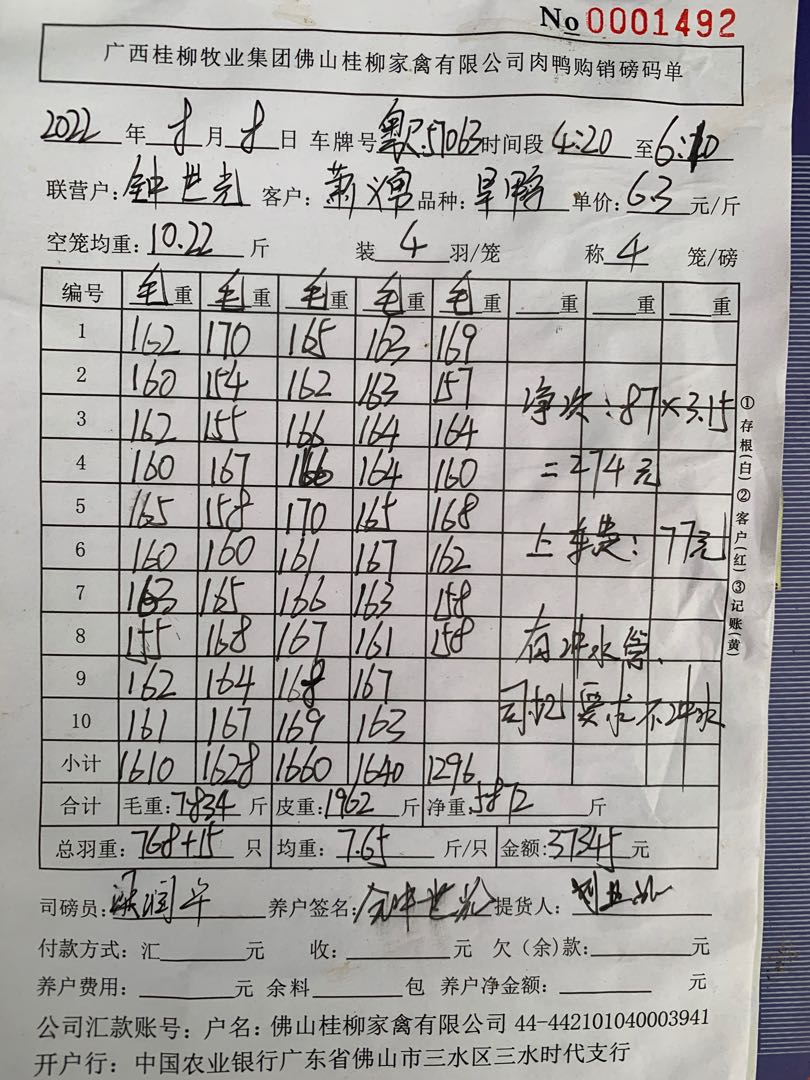 No 0001492
广西桂柳牧业集团佛山桂柳家禽有限公司肉鸭购销磅码单
2022 年 8 月 8 日 车牌号 57063 时间段 4:20 至 6:10
联营户: 钟世光 客户: 萧 品种: 旱鸭 单价: 6.3 元/斤
空笼均重: 10.22 斤 装 4 羽/笼 称 4 笼/磅
编号 毛重 毛重 毛重 毛重 毛重 重 重 重
1 162 170 165 163 169
2 160 154 162 163 157 净次:87×3.15
3 162 155 166 164 164
4 160 167 166 164 160 =274元
5 165 158 170 165 168
6 160 160 161 167 162 上车费:77元
7 163 165 166 163 158
8 155 168 167 161 158 有冲水管、
9 162 164 168 167 司机要求不冲水
10 161 167 169 163
小计 1610 1628 1660 1640 1296
合计 毛重: 7834 斤 皮重: 1962 斤 净重: 5872 斤
总羽重: 768+15 只 均重: 7.65 斤/只 金额: 37345 元
司磅员: 润 养户签名: 钟世光 提货人:
付款方式: 汇 元 收: 元 欠(余)款: 元
养户费用: 元 余料 包 养户净金额: 元
公司汇款账号: 户名: 佛山桂柳家禽有限公司 44-442101040003941
开户行: 中国农业银行广东省佛山市三水区三水时代支行
①存根(白)②客户(红)③记账(黄)